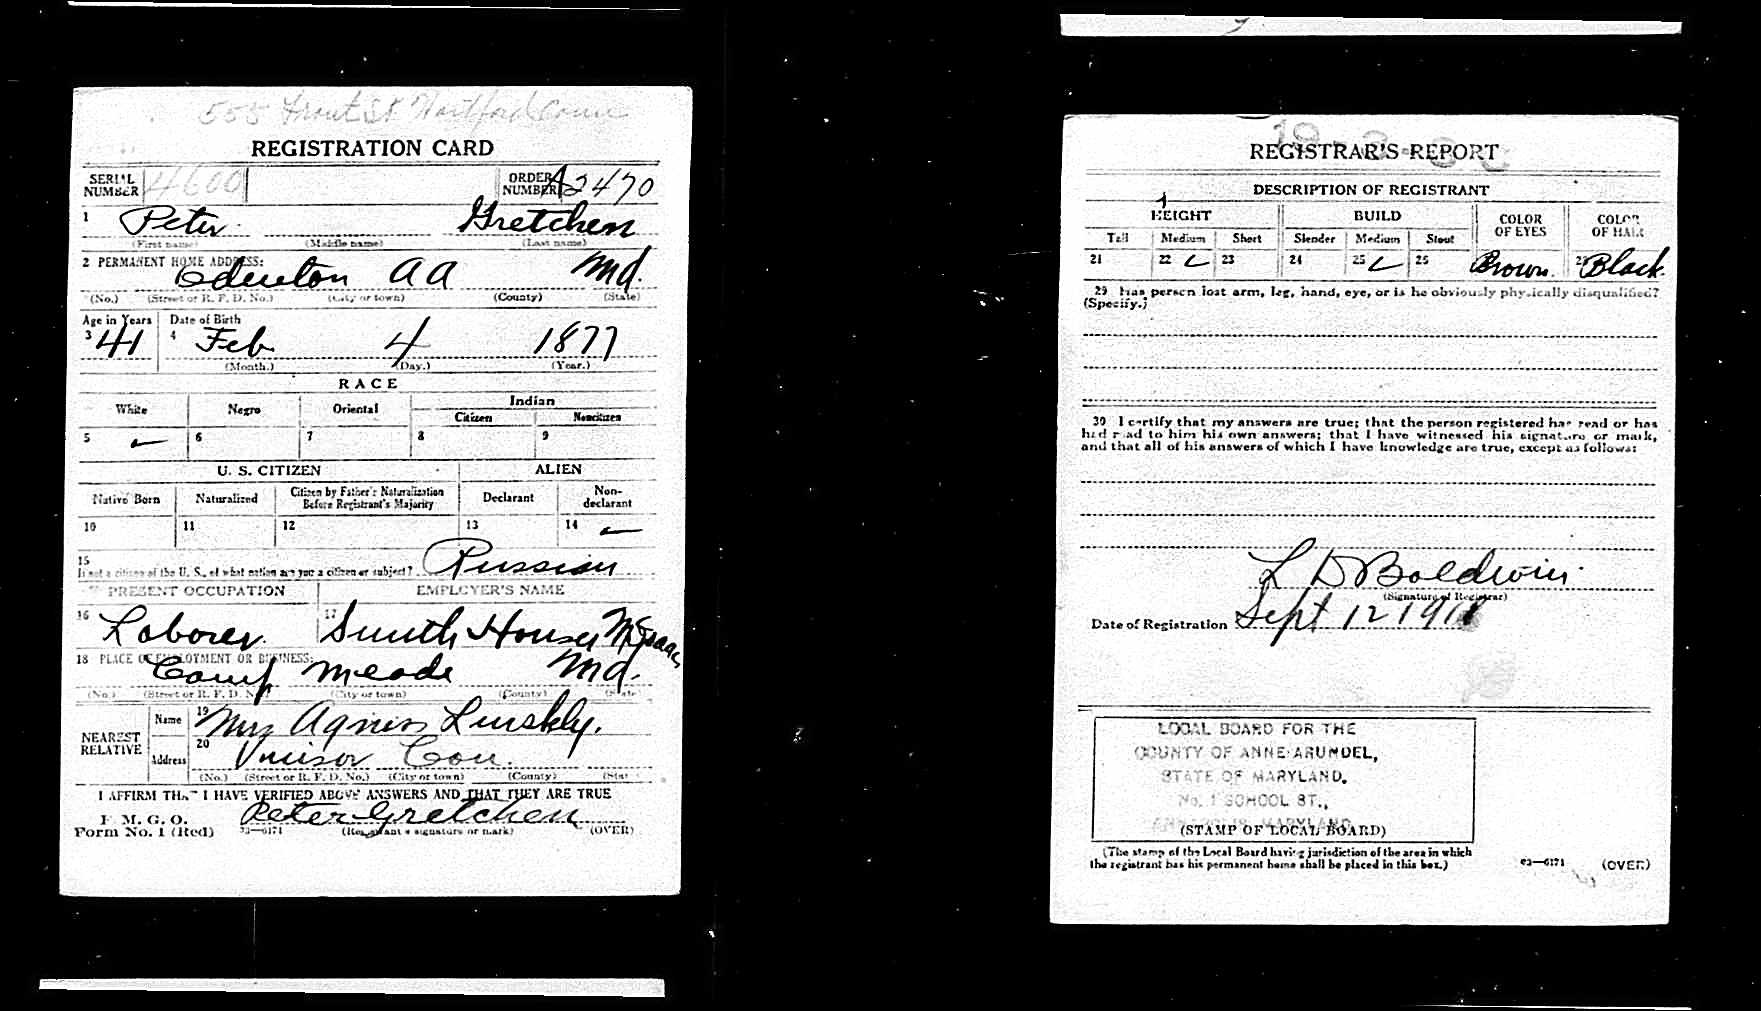 555 Front St Hartford Conn
REGISTRATION CARD
SERIAL NUMBER 4600 ORDER NUMBER A2470
1 Peter Gretchen
(First name) (Middle name) (Last name)
2 PERMANENT HOME ADDRESS:
Odenton AA Md.
(No.) (Street or R. F. D. No.) (City or town) (County) (State)
Age in Years Date of Birth
3 41 4 Feb 4 1877
(Month.) (Day.) (Year.)
RACE
White Negro Oriental Indian
Citizen Noncitizen
5 6 7 8 9
U. S. CITIZEN ALIEN
Native Born Naturalized Citizen by Father's Naturalization Before Registrant's Majority Declarant Non-declarant
10 11 12 13 14
15
If not a citizen of the U. S., of what nation are you a citizen or subject? Russian
PRESENT OCCUPATION EMPLOYER'S NAME
16 Laborer 17 Smith Houser McIsaac
18 PLACE OF EMPLOYMENT OR BUSINESS:
Camp Meade Md.
(No.) (Street or R. F. D. No.) (City or town) (County) (State)
NEAREST RELATIVE Name 19 Mrs Agnes
Address 20 Conn.
(No.) (Street or R. F. D. No.) (City or town) (County) (State)
I AFFIRM THAT I HAVE VERIFIED ABOVE ANSWERS AND THAT THEY ARE TRUE
P. M. G. O.
Form No. 1 (Red) 03—6171 Peter Gretchen
(Registrant's signature or mark) (OVER)
REGISTRAR'S REPORT
DESCRIPTION OF REGISTRANT
HEIGHT BUILD COLOR OF EYES COLOR OF HAIR
Tall Medium Short Slender Medium Stout
21 22 23 24 25 26 Brown Black
29 Has person lost arm, leg, hand, eye, or is he obviously physically disqualified?
(Specify.)
30 I certify that my answers are true; that the person registered has read or has
had read to him his own answers; that I have witnessed his signature or mark,
and that all of his answers of which I have knowledge are true, except as follows:
L D Baldwin
(Signature of Registrar)
Date of Registration Sept 12 1918
LOCAL BOARD FOR THE
COUNTY OF ANNE ARUNDEL,
STATE OF MARYLAND.
No. 1 SCHOOL ST.,
ANNAPOLIS, MARYLAND.
(STAMP OF LOCAL BOARD)
(The stamp of the Local Board having jurisdiction of the area in which
the registrant has his permanent home shall be placed in this box.)
03—6171 (OVER)